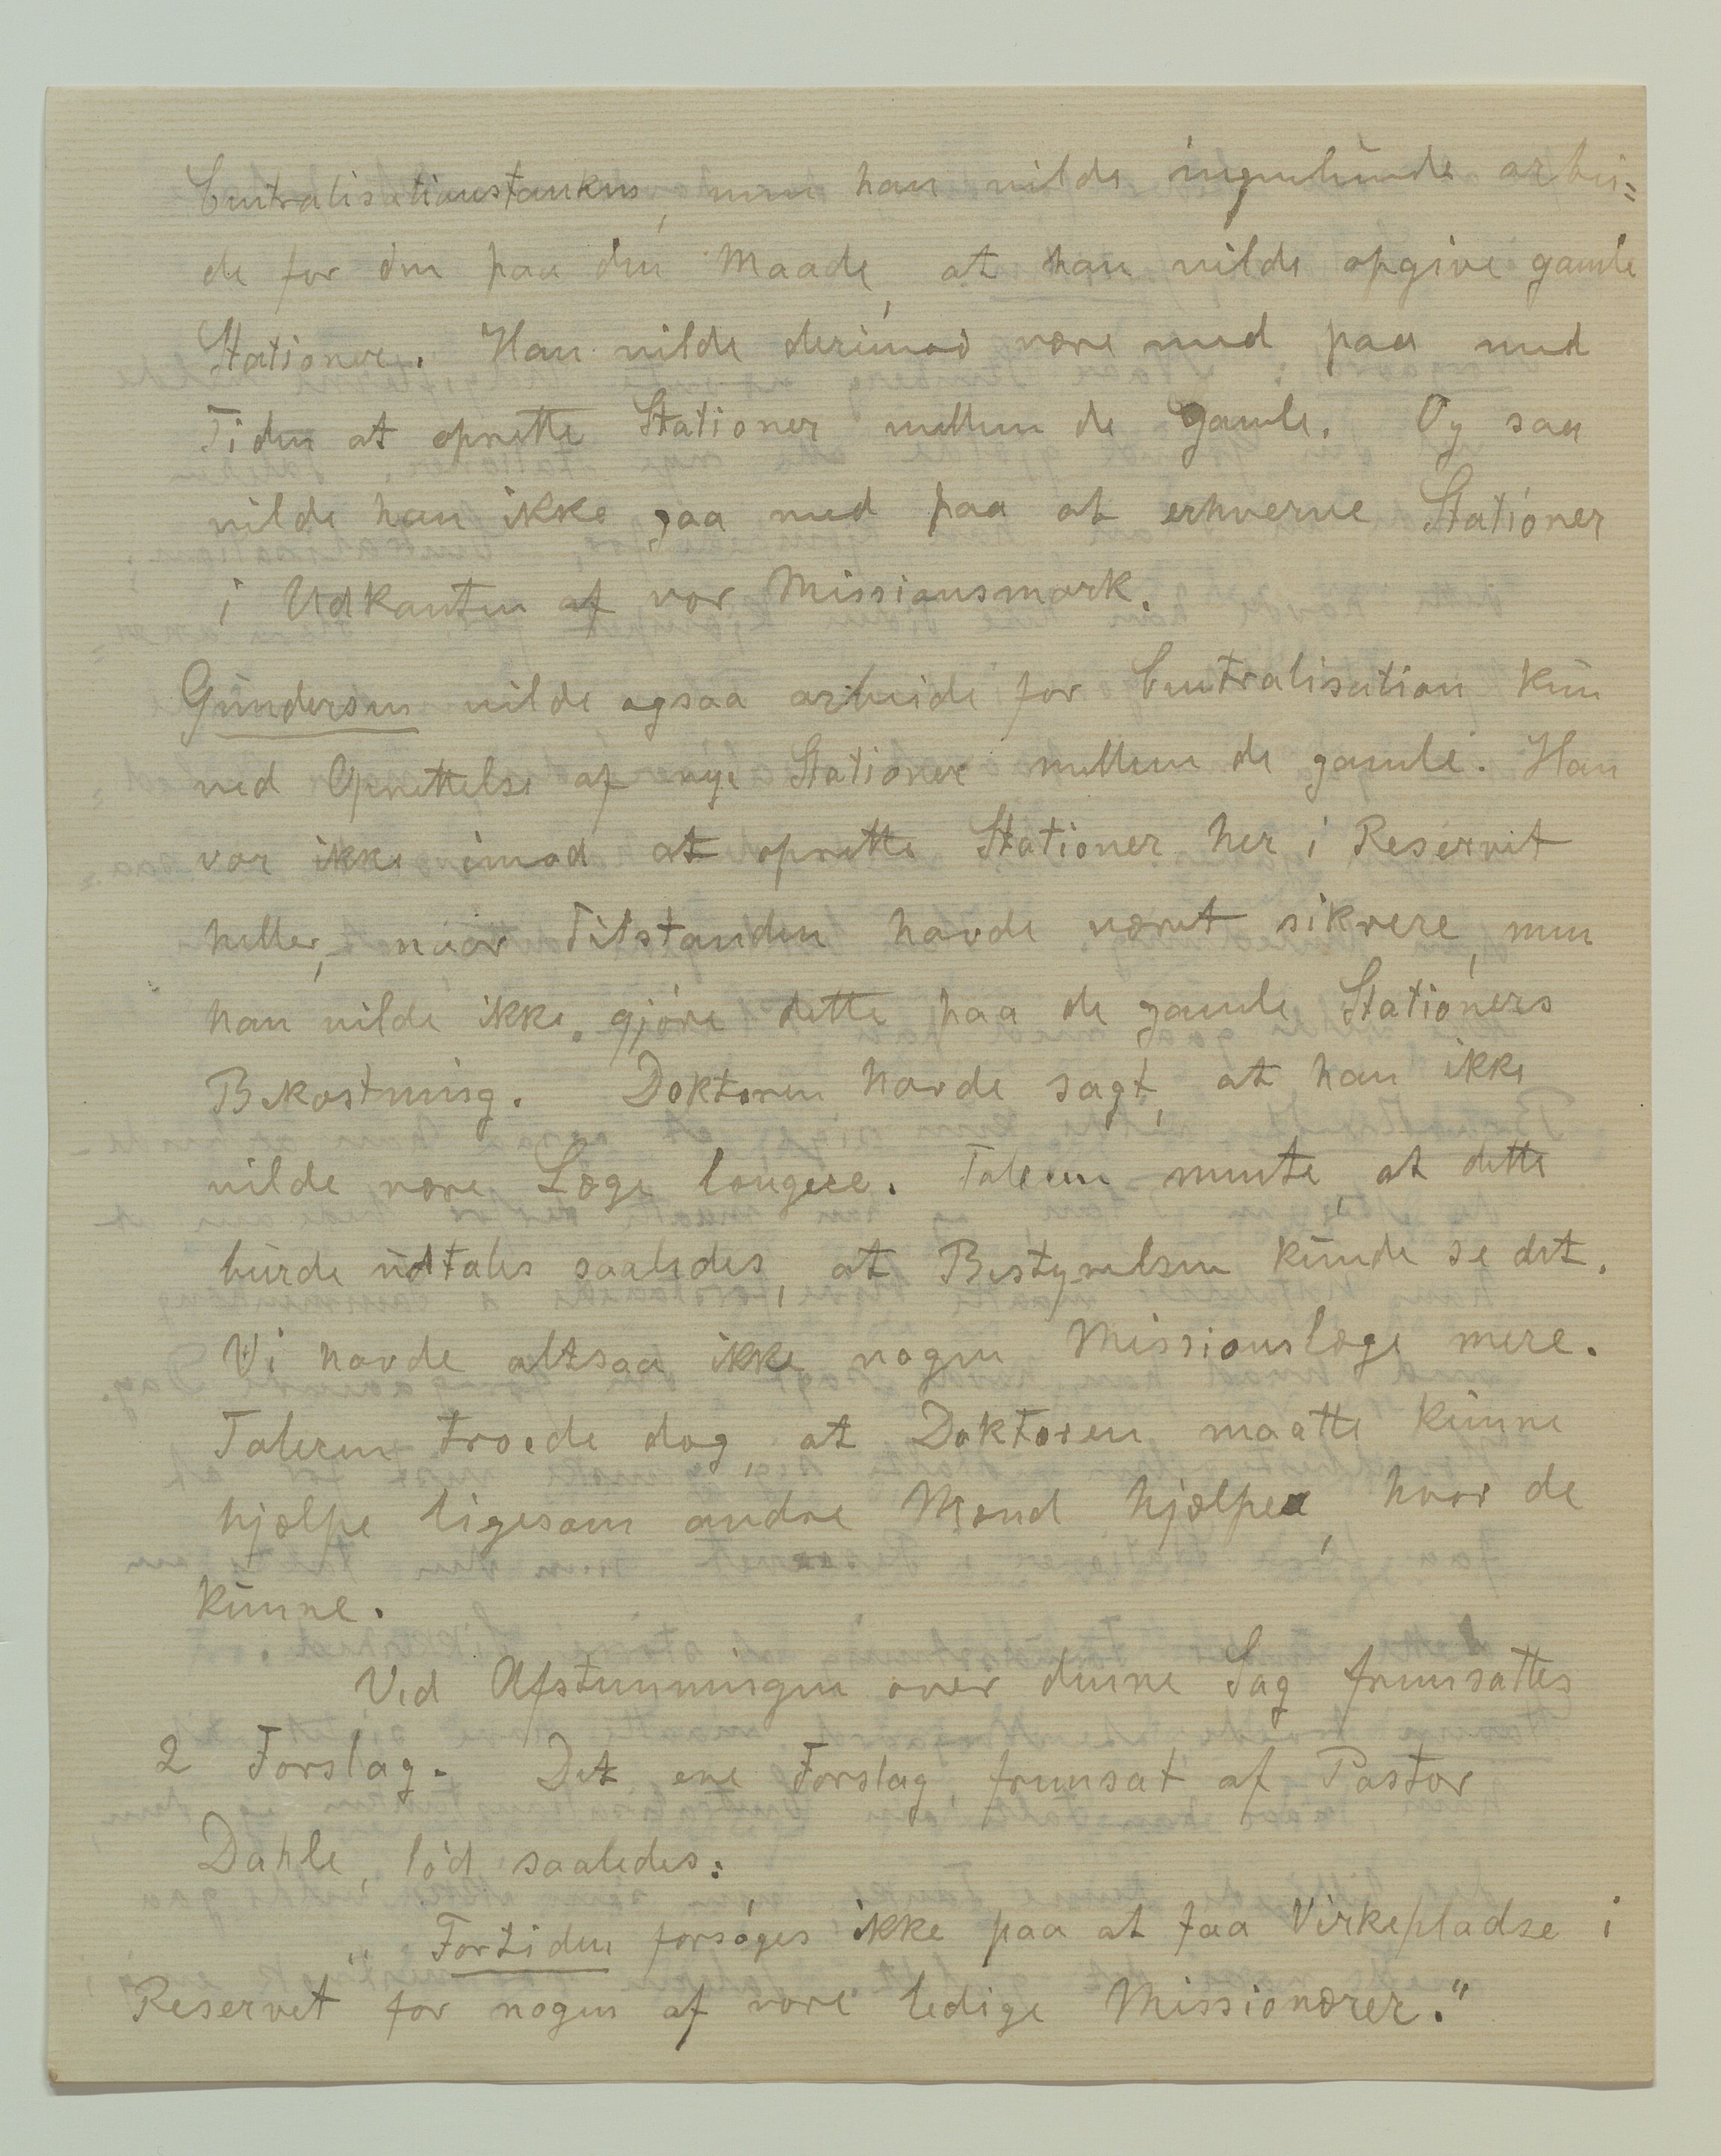 Centralisationstanken, men han vilde ingenlunde arbei=
de for den paa den Maade, at han vilde opgive gamle
Stationer. Han vilde derimod være med paa med
Tiden at oprette Stationer mellem de gamle. Og saa
vilde han ikke gaa med paa at erhverve Stationer
i Udkanten af vor Missionsmark.
Gundersen vilde ogsaa arbeide for Centralisation kun
ved Oprettelse af nye Stationer mellem de gamle. Han
var ikke imod at oprette Stationer her i Reservet
heller, naar Tilstanden havde været sikrere, men
han vilde ikke gjöre dette paa de gamle Stationers
Bekostning. Doktoren havde sagt, at han ikke
vilde være Læge længere. Taleren mente, at dette
burde udtales saaledes, at Bestyrelsen kunde se det.
Vi havde altsaa ikke nogen Missionslæge mere.
Taleren troede dog, at Doktoren maatte kunne
hjælpe ligesom andre Mænd hjælper, hvor de
kunne.
Ved Afstemningen over denne Sag fremsattes
2 Forslag. Det ene Forslag, fremsat af Pastor
Dahle, löd saaledes:
„Fortiden forsöges ikke paa at faa Virkepladse i
Reservet for nogen af vore ledige Missionærer."